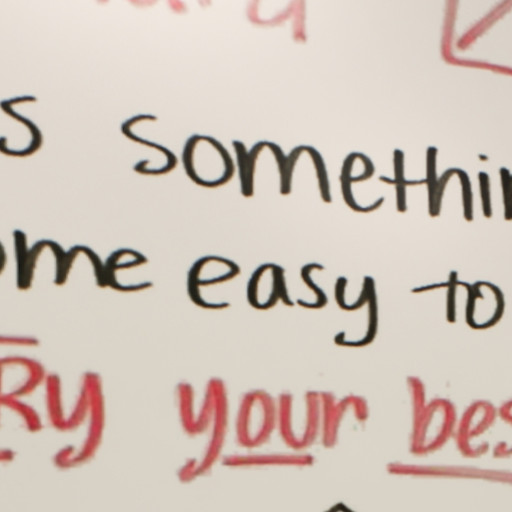 s somethin
ome easy to
Ry your bes